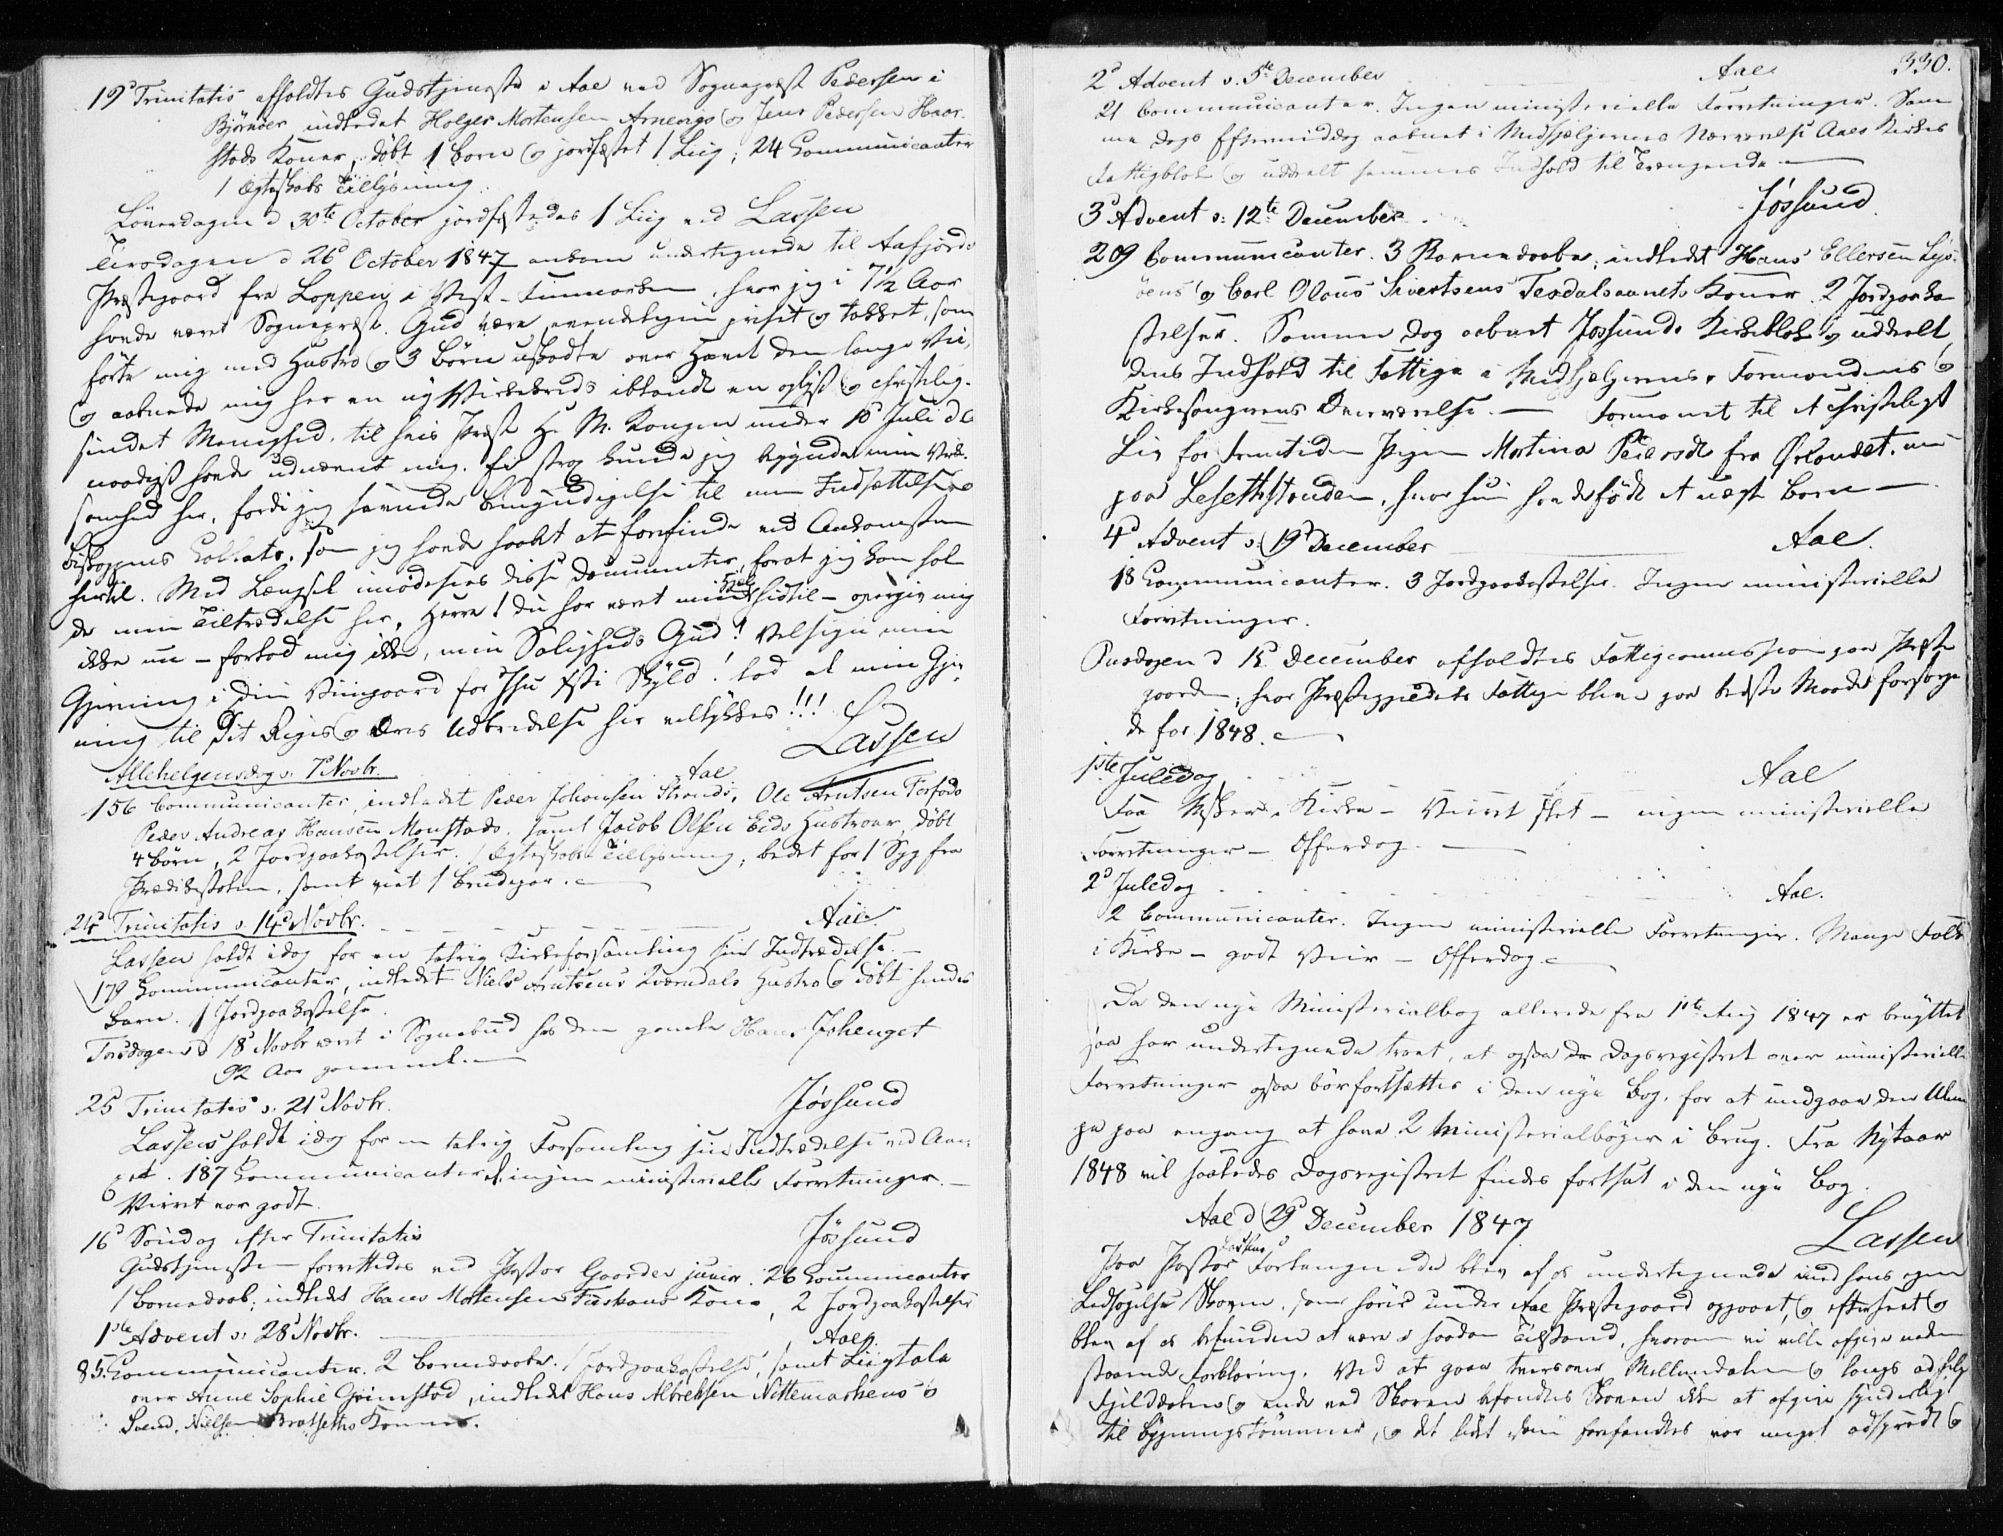 19d Trinitatis afholdtes Gudstjeneste i Aae ved Sogneprest Pedersen i
Bjørnøer indledet Holger Mortensen Arnevigs og Jens Pedersen Haar-
stads Koner, døbt 1 Barn og jordfæstet 1 Liig; 24 Communicanter
1 Ægteskabs Tillysning.
Løverdagen d 30te October jordfæstedes 1 Liig ved Lassen
Tirsdagen d 26d October 1847 ankom undertegnede til Aafjords
Præstegaard fra Loppen i Vest-Finmarken, hvor jeg i 7½ Aar
havde været Sogneprest. Gud være evindeligen priset og takket, som
førte mig med Hustro og 3 Børn uskadte over Havet den lange Vei,
og aabnede mig her en ny Virkekreds iblandt en oplyst og christelig-
sindet Menighed, til hvis Prest H. M. Kongen under 10d Juli d A
naadigst havde udnævnt mig. Ei strax kunde jeg begynde min Virk-
somhed her, fordi jeg savnede Bemyndigelse til min Indsættelse og
Biskoppens Collats, som jeg havde haabet at forefinde ved Ankomsten
hertil. Med Længsel imødesees disse Documenter, forat jeg kan hol-
de min Tiltrædelse her. Herre! Du har været min Hjelp hidtil - opgiv mig
ikke nu - forlad mig ikke, min Saligheds Gud! Velsign min
Gjerning i Din Viingaard for Jhu Xsti Skyld! lad al min Gjer-
ning til Dit Riges og Æres Udbredelse her vellykkes!!!
Lassen
Allehelgensdag d. 7 Novbr. Aae
156 Communicanter, indledet Peder Johansen Strands, Ole Arntsen Forfods
Peder Andreas Hansen Monstads, samt Jacob Olsen Eids Hustroer, døbt
4 Børn, 2 Jordpaakastelser. 1 Ægteskabs Tillysning; bedet for 1 Syg fra
Prædikestolen, samt viet 1 Brudepar.
24d Trinitatis d. 14d Novbr. Aae
Lassen holdt idag for en talrig Kirkeforsamling sin Indtrædelse.
179 Communicanter, indledet Niels Arntsens Qværndals Hustro og døbt hendes
Barn. 1 Jordpaakastelse.
Torsdagen d 18d Novbr været i Sognebud hos den gamle Hans
92 Aar gammel.
25 Trinitatis d. 21d Novbr. Jøssund
Lassen holdt idag for en talrig Forsamling sin Indtrædelse ved
187 Communicanter, ingen ministerielle Forretninger.
Veiret var godt.
16d Søndag efter Trinitatis Jøssund
Gudstjenesten forrettedes ved Pastor Gaarder junior. 26 Communicanter
1 Barnedaab; indledt Hans Mortensen Kone, 2 Jordpaakastelser
1ste Advent d. 28d Novbr. Aae
85 Communicanter. 2 Barnedaabe. 1 Jordpaakastelse, samt Liigtale
over Anne Sophie Grimstad, indledt Hans Albrektsen Nittemarkens og
Svend Nielsen Bratseths Konner.
330.
2d Advent d. 5te December Aae
21 Communicanter. Ingen ministerielle Forretninger. Sam-
me Dags Eftermiddag aabnet i Medhjælpernes Nærværelse Aaes Kirkes
Fattigblok og uddeelt sammes Indhold til Trængende.
3d Advent d. 12te December. Jøssund
209 Communicanter. 3 Barnedaabe, indledt Hans Ellersen Lys-
øens og Carl Olaus Sivertsens Teksdalsvandets Koner. 2 Jordpaaka-
stelser. Samme Dag aabnet Jøssunds Kirkeblok og uddeelt
dens Indhold til Fattige i Medhjelperens, Formandens og
Kirkesangerens Nærværelse. - Formanet til et christeligt
Liv for Fremtiden Pigen Martina Pedersdt fra Ørlandet, nu
paa Lesethstranden, hvor hun havde født et uægte Barn -
4d Advent d. 19d December Aae.
18 Communicanter. 3 Jordpaakastelser. Ingen ministerielle
Forretninger.
Onsdagen d 15 December afholdtes Fattigcommission paa Præste-
gaarden; hvor Præstegjeldets Fattige bleve paa bedste Maade forsørge-
de for 1848.
1ste Juledag Aae
Faa Mennesker i Kirke - Veiret slet - ingen ministerielle
Forretninger - Offerdag.
2d Juledag Aae.
2 Communicanter. Ingen ministerielle Forretninger. Mange Folk
i Kirke - godt Veir - Offerdag.
Da den nye Ministerialbog allerede fra 1ste Aug 1847 er benyttet
saa har undertegnede troet, at ogsaa Dagsregistret over ministerielle
Forretninger ogsaa bør fortsættes i den nye Bog, for at undgaae den Ulem-
pe paa engang at have 2 Ministerialbøger i Brug. Fra Nytaar
1848 vil saaledes Dagsregistret findes fortsat i den nye Bog.
Aae d 29d December 1847
Lassen
Paa Pastor Lassens Forlangende blev af os undertegnede med hans egen
Ledsagelse Skoven, som hører under Aae Præstegaard opgaaet, og efterseet og
blev af os befunden at være i saadan Tilstand, hvorom vi ville afgive neden-
staaende Forklaring. Ved at gaae tversover Mellumdalen og langs
Fjeldsiden og ned Skoven befandtes Skoven ikke at afgive synderlig
til Bygningstømmer, og det lidet som forefandtes var meget adspredt og